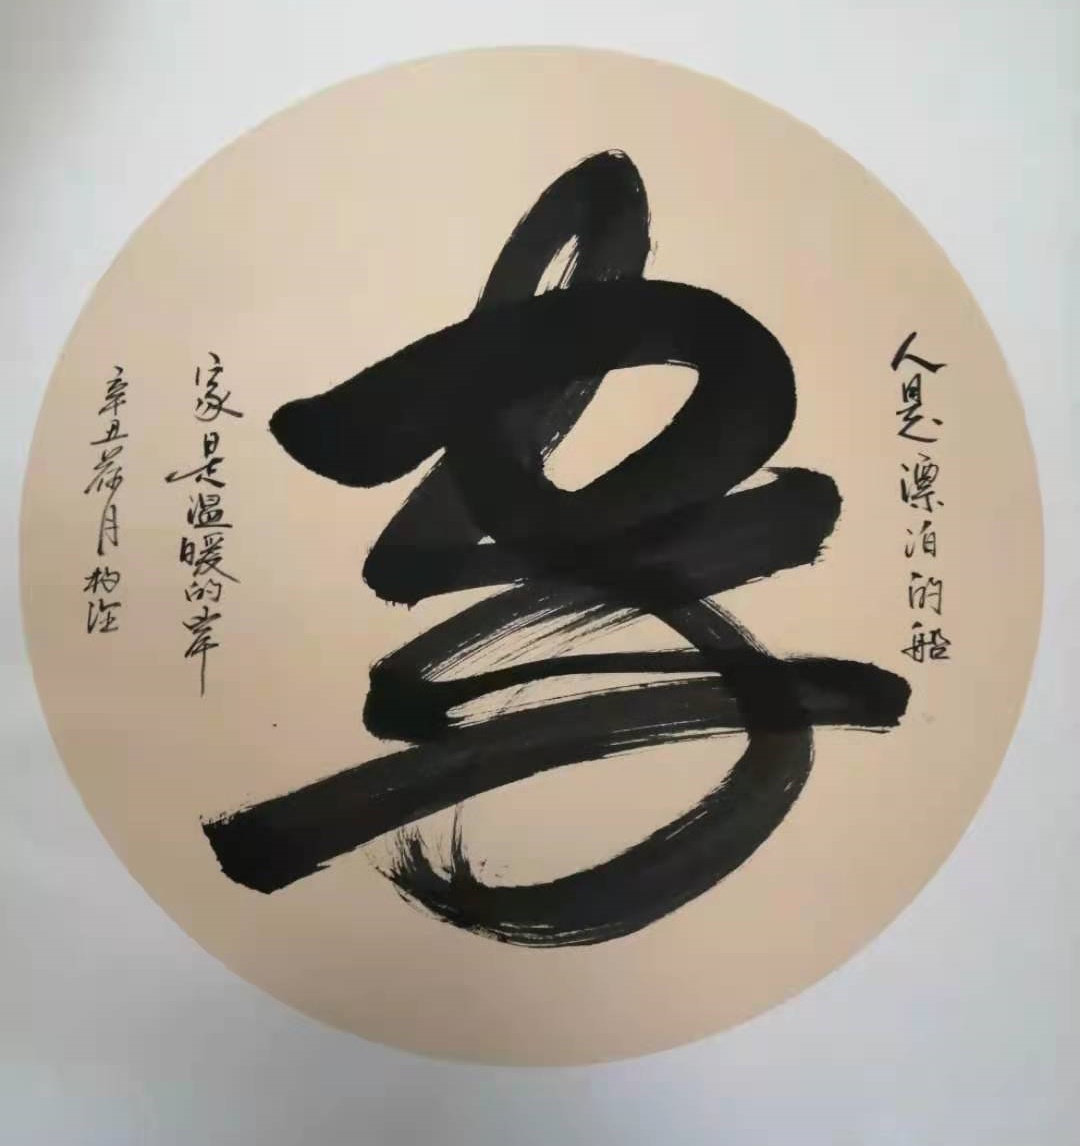 人是漂泊的船
家是温暖的岸
辛丑荷月